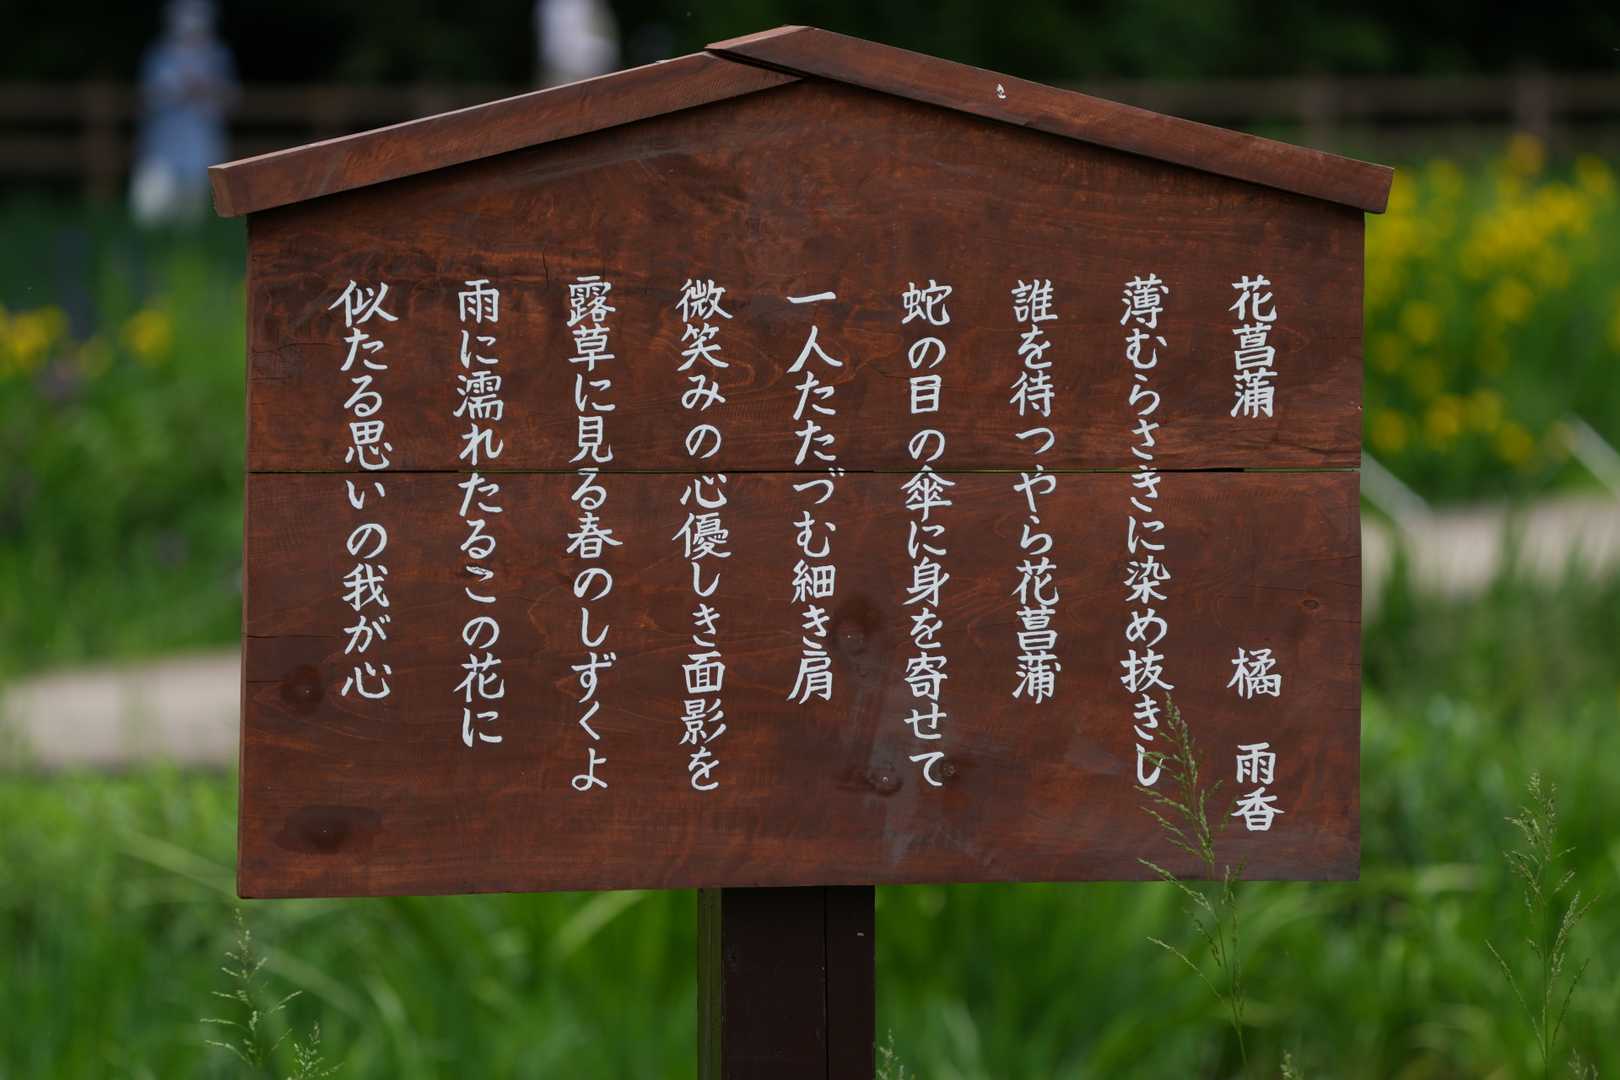 花菖蒲　橘　雨香
薄むらさきに染め抜きし
誰を待つやら花菖蒲
蛇の目の傘に身を寄せて
一人たたづむ細き肩
微笑みの心優しき面影を
露草に見る春のしずくよ
雨に濡れたるこの花に
似たる思いの我が心